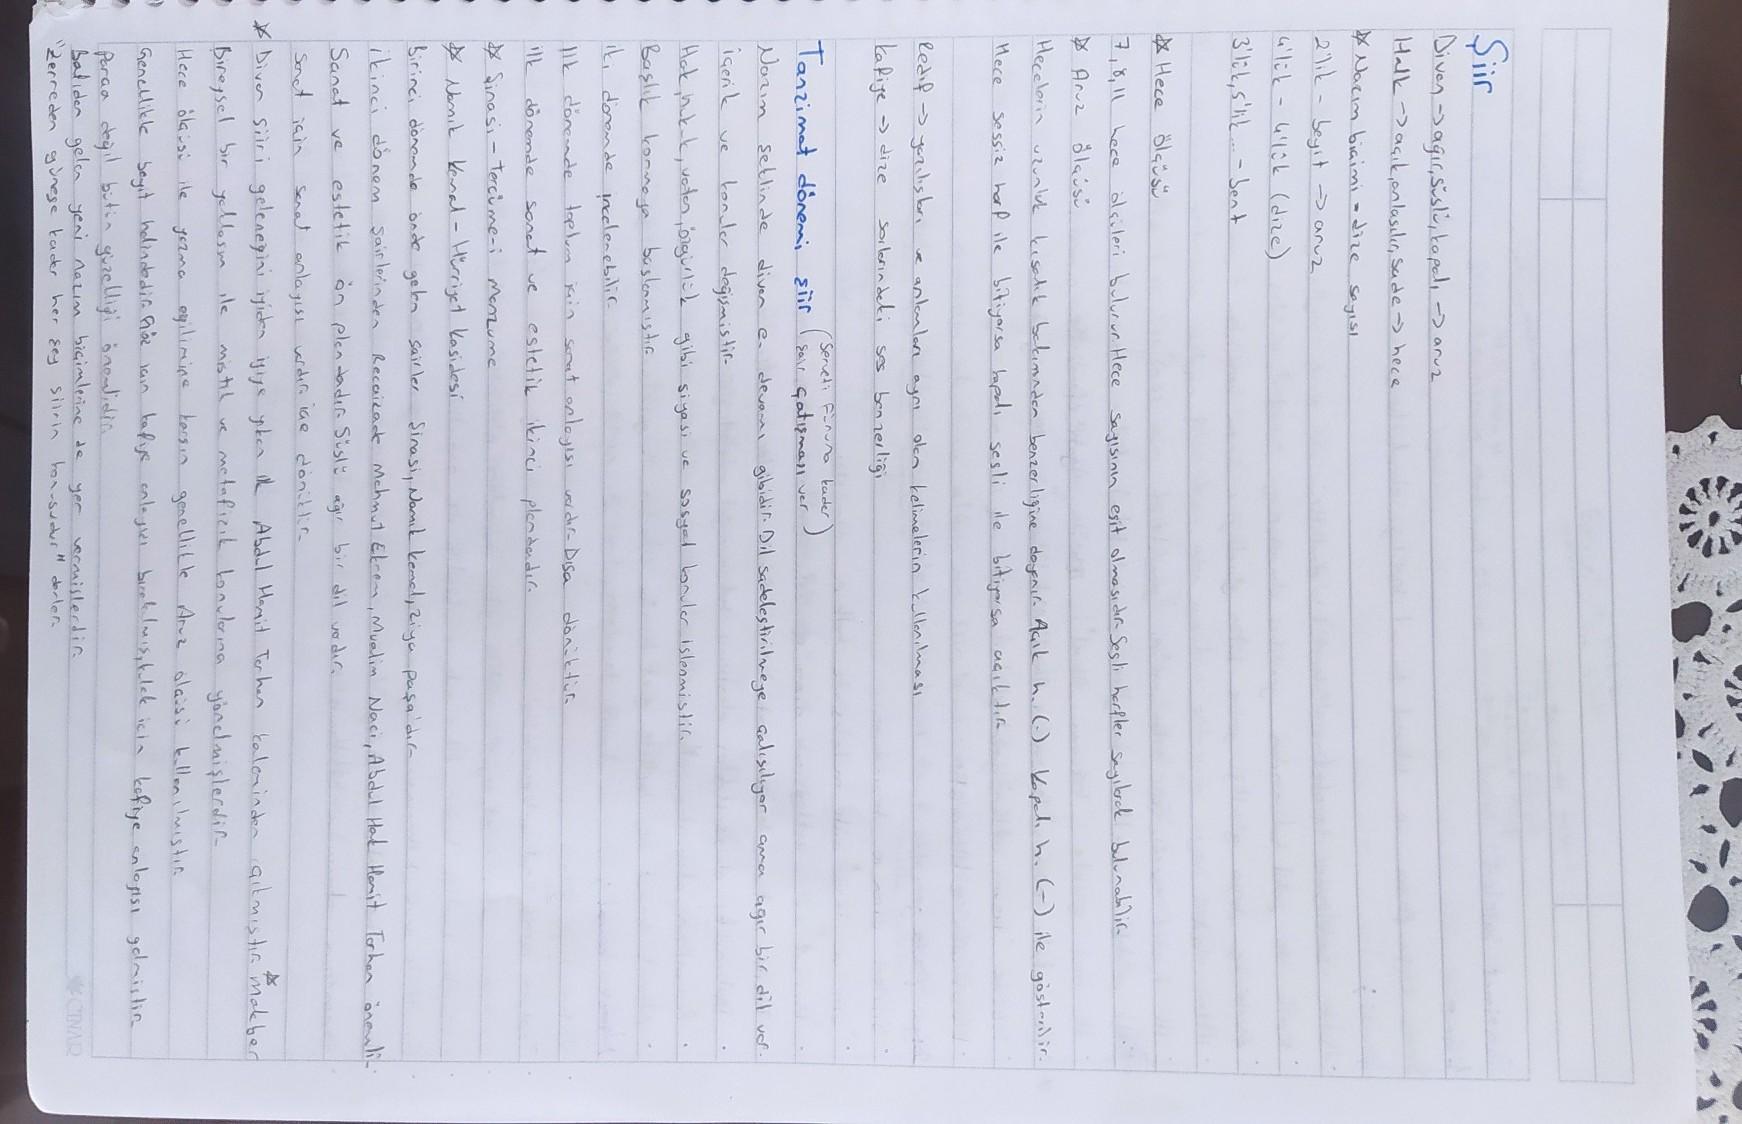 Şiir
Divan → ağır, süslü, kapalı → aruz
Halk → açık, anlaşılır, sade → hece
☆ Nazım biçimi = dize sayısı
2'lik - beyit → aruz
4'lük - 4'lük (dize)
3'lük, 5'lik... - bent
☆ Hece Ölçüsü
7, 8, 11 hece ölçüleri bulunur. Hece sayısının eşit olmasıdır. Sesli harfler sayılarak bulunabilir.
☆ Aruz Ölçüsü
Hecelerin uzunluk kısalık bakımından benzerliğine dayanır. Açık h. (.) Kapalı h. (-) ile gösterilir.
Hece sessiz harf ile bitiyorsa kapalı sesli ile bitiyorsa açıktır.
Redif → yazılışları ve anlamları aynı olan kelimelerin kullanılması
Kafiye → dize sonlarındaki ses benzerliği
Tanzimat dönemi şiir (Serveti Fünuna kadar)
(şair çatışması var)
Nazım şeklinde divan e. devamı gibidir. Dil sadeleştirilmeye çalışılıyor ama ağır bir dil var.
İçerik ve konular değişmiştir.
Hak, hukuk, vatan, özgürlük gibi siyasi ve sosyal konular işlenmiştir.
Başlık konmaya başlanmıştır.
İki dönemde incelenebilir.
İlk dönemde toplum için sanat anlayışı vardır. Dışa dönüktür.
İlk dönemde sanat ve estetik ikinci plandadır.
☆ Şinasi - Tercüme-i Manzume
☆ Namık Kemal - Hürriyet Kasidesi
Birinci dönemde önde gelen şairler Şinasi, Namık Kemal, Ziya paşa'dır.
İkinci dönem şairlerinden Recaizade Mahmut Ekrem, Muallim Naci, Abdul Hak Hamit Tarhan önemli.
Sanat ve estetik ön plandadır. Süslü ağır bir dil vardır.
Sanat için sanat anlayışı vardır. İçe dönüktür.
☆ Divan şiiri geleneğini iyiden iyiye yıkan ilk Abdul Hamit Tarhan kaleminden çıkmıştır. ☆ Makber
Bireysel bir yaklaşım ile mistik ve metafizik konularına yönelmişlerdir.
Hece ölçüsü ile yazma eğilimine karşın genellikle Aruz ölçüsü kullanılmıştır.
Genellikle beyit halindedir. Göz için kafiye anlayışı bırakılmış, kulak için kafiye anlayışı gelmiştir.
Parça değil bütün güzelliği önemlidir.
Batıdan gelen yeni nazım biçimlerine de yer vermişlerdir.
"Zerreden güneşe kadar her şey şiirin konusudur" derler.
ÇINAR